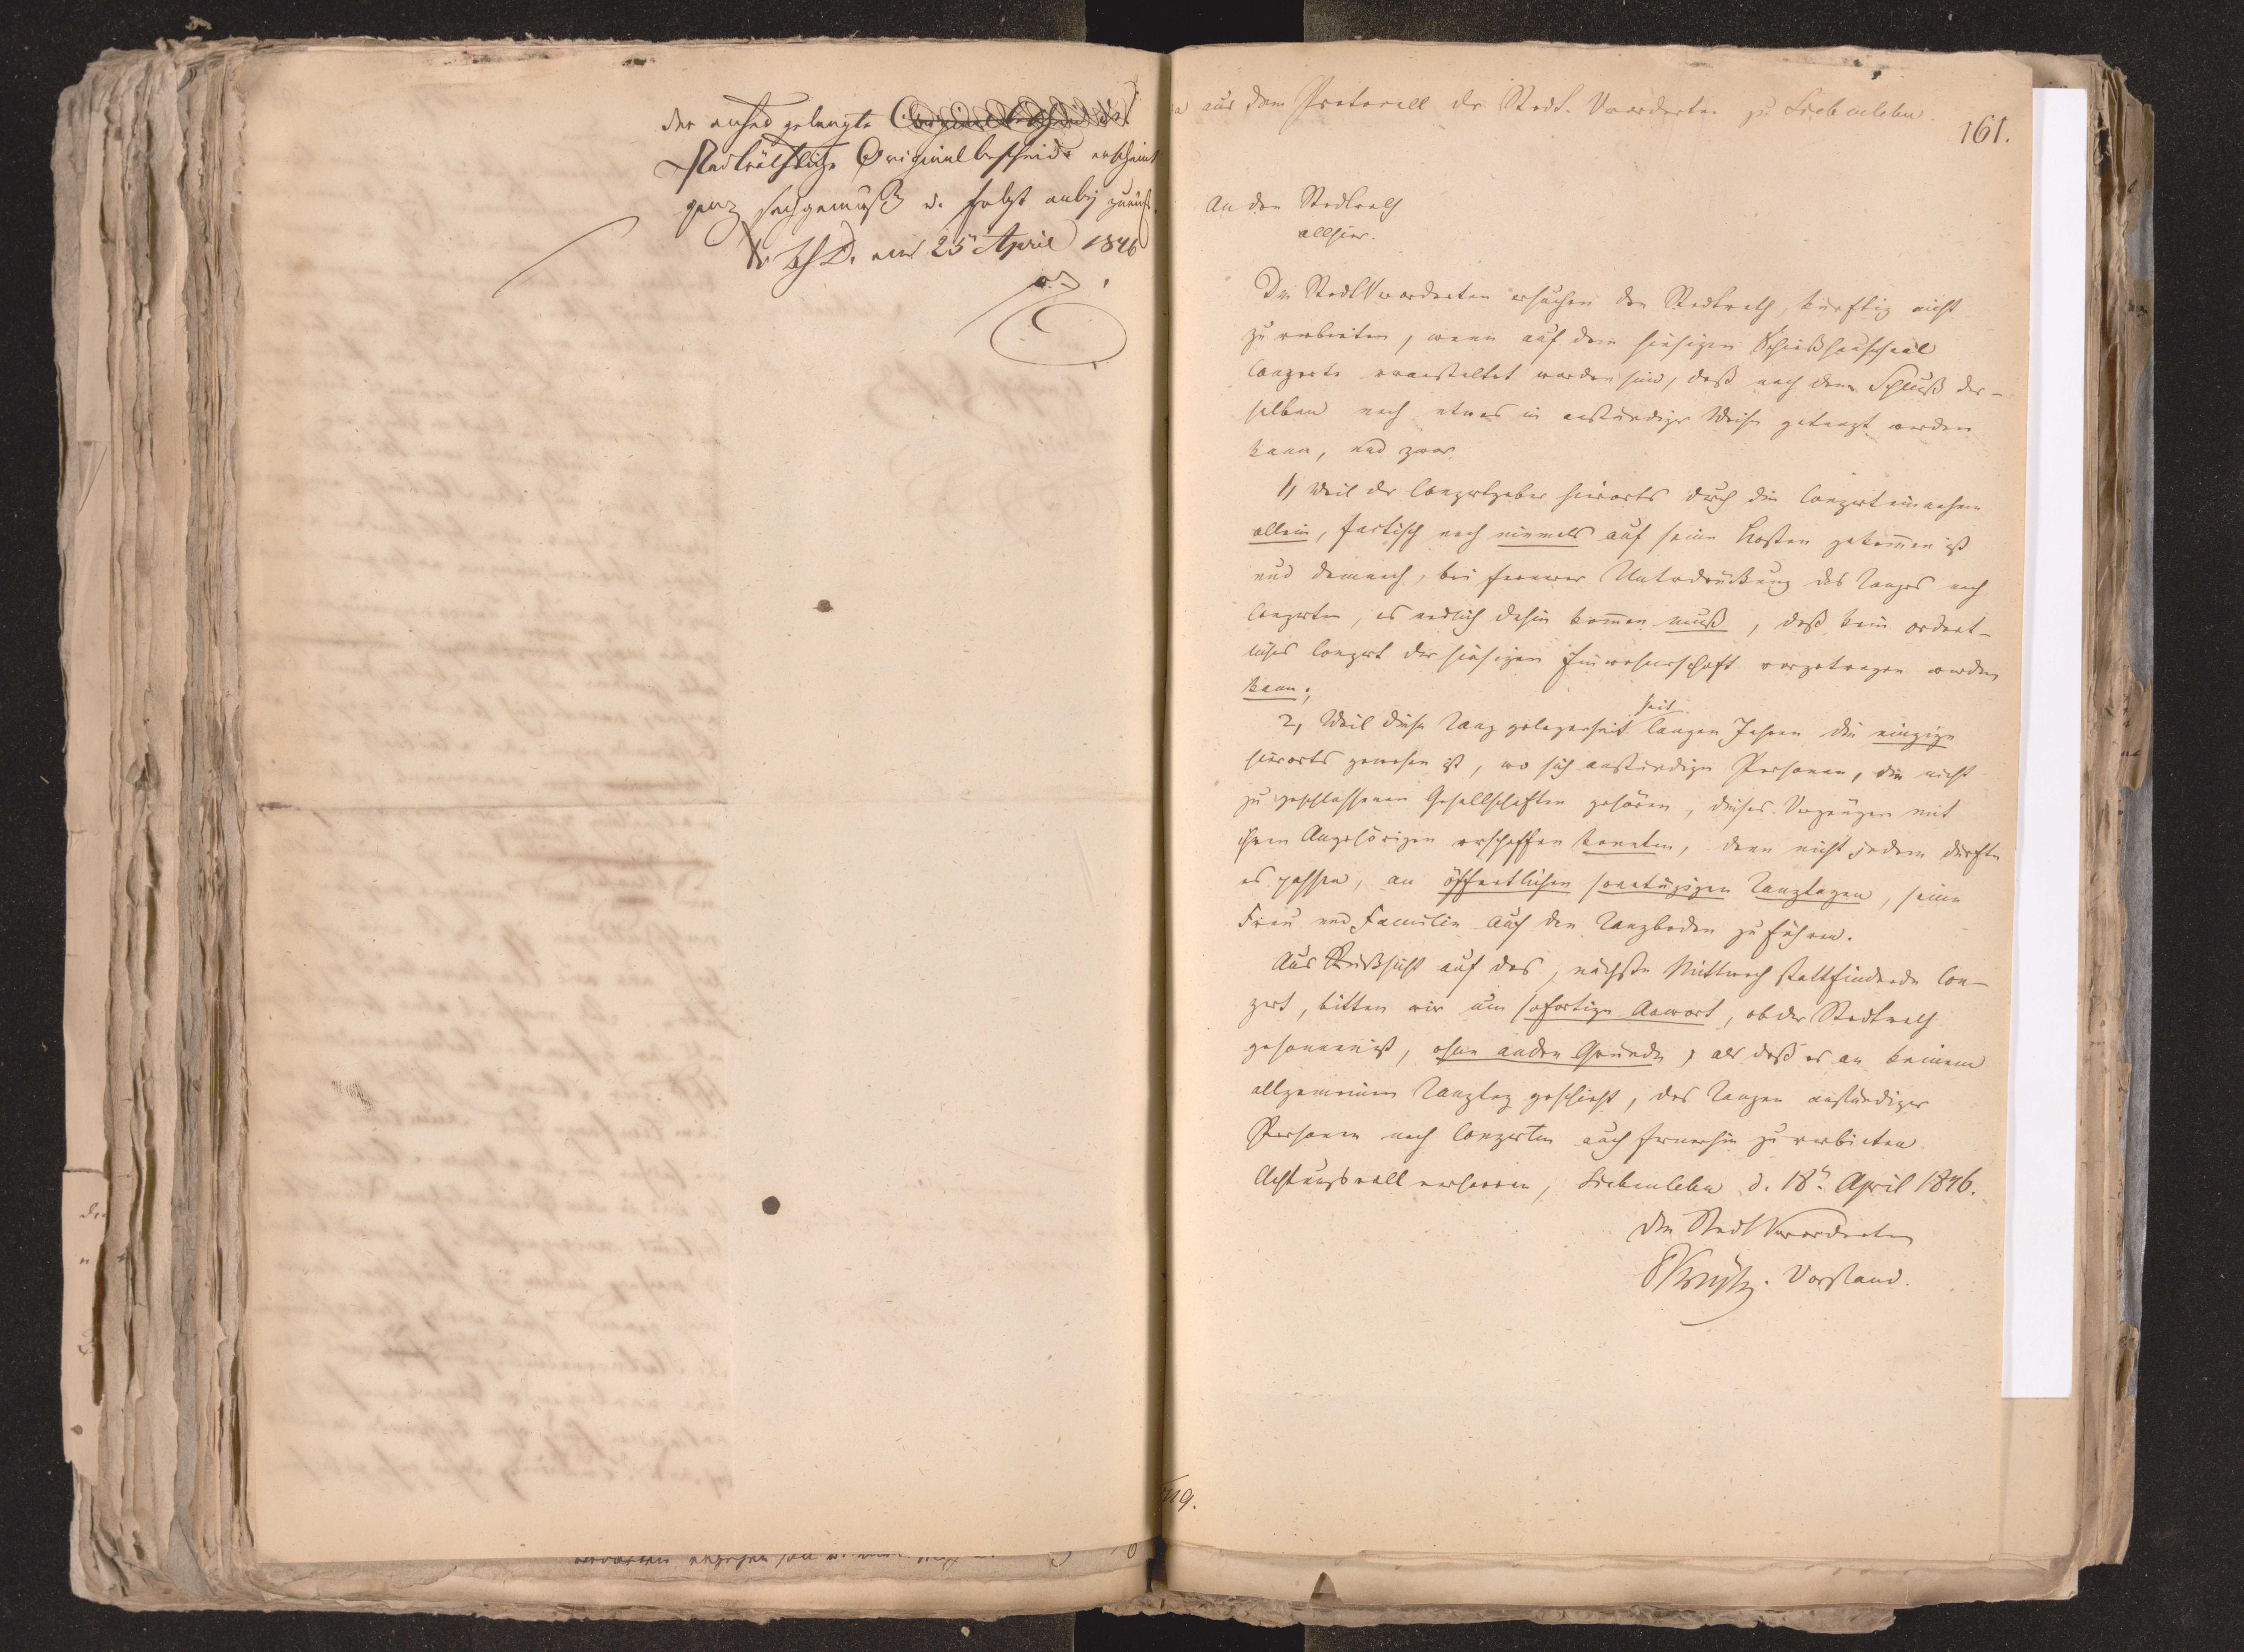 der anhero gelangte Originalbescheid des
Stadträthliche Originalbescheid erscheint
ganz sachgemäß u. folgt anbej zurück.
am 25 April 1846
aus dem Protocoll der Stadt-Verordneten zu Siebenlehn.
161.
An den Stadtrath
allhier.
Die StadtVerordneten ersuchen den Stadtrath, künftig nicht
zu verbieten, wenn auf dem hiesigen Schießhaussaal
Conzerte veranstaltet worden sind, daß nach dem Schluß der-
selben noch etwas in anständiger Weise getanzt werden
kann, und zwar
1, Weil der Conzertgeber hierorts durch die Conzerteinnahme
allein, factisch noch niemals auf seine Kosten gekommen ist
und demnach, bei fernerer Unterdrückung des Tanzes nach
Conzerten, es endlich dahin kommen muß, daß kein ordent-
liches Conzert der hiesigen Einwohnerschaft vorgetragen werden
kann;
2, Weil diese Tanzgelegenheit seit langen Jahren die einzige
hierorts gewesen ist, wo sich anständige Personen, die nicht
zu geschlossenen Gesellschaften gehören, dieses Vergnügen mit
ihren Angehörigen verschaffen konnten, denn nicht jedem dürfte
es passen, an öffentlichen sonntägigen Tanztagen, seine
Frau und Familie auf den Tanzboden zu führen.
Aus Rücksicht auf das, nächste Mittwoch stattfindende Con-
zert, bitten wir um sofortige Anwort, ob der Stadtrath
gesonnen ist, ohne andre Gründe, als daß es an keinem
allgemeinen Tanztag geschieht, das Tanzen anständiger
Personen nach Conzerten auch fernerhin zu verbieten
Achtungsvoll verharren, Siebenlehn d. 18n. April 1846.
Die StadtVerordneten
Vorstand.